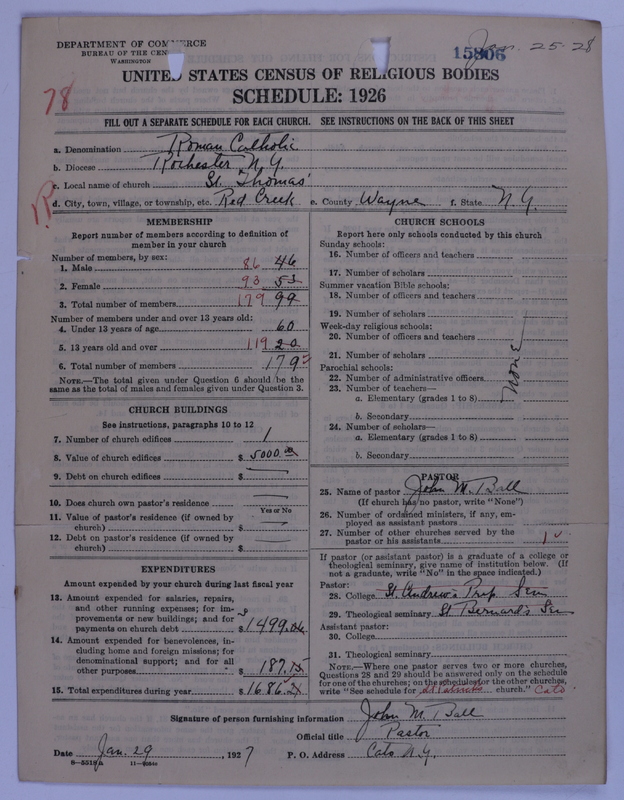 DEPARTMENT OF COMMERCE
BUREAU OF THE CEN
WASHINGTON
15806
Jan. 25-28
UNITED STATES CENSUS OF RELIGIOUS BODIES
SCHEDULE: 1926
78
FILL OUT A SEPARATE SCHEDULE FOR EACH CHURCH. SEE INSTRUCTIONS ON THE BACK OF THIS SHEET
a. Denomination Roman Catholic
b. Diocese Rochester N.Y.
c. Local name of church St. Thomas'
d. City, town, village, or township, etc. Red Creek e. County Wayne f. State N.Y.
MEMBERSHIP
Report number of members according to definition of
member in your church
Number of members, by sex:
1. Male 86 46
2. Female 93 53
3. Total number of members 179 99
Number of members under and over 13 years old:
4. Under 13 years of age 60
5. 13 years old and over 119 20
6. Total number of members 179
NOTE.—The total given under Question 6 should be the
same as the total of males and females given under Question 3.
CHURCH BUILDINGS
See instructions, paragraphs 10 to 12
7. Number of church edifices 1
8. Value of church edifices $ 5000.00
9. Debt on church edifices $
10. Does church own pastor's residence
Yes or No
11. Value of pastor's residence (if owned by
church) $
12. Debt on pastor's residence (if owned by
church) $
EXPENDITURES
Amount expended by your church during last fiscal year
13. Amount expended for salaries, repairs,
and other running expenses; for im-
provements or new buildings; and for
payments on church debt $ 1499.06
14. Amount expended for benevolences, in-
cluding home and foreign missions; for
denominational support; and for all
other purposes $ 187.15
15. Total expenditures during year $ 1686.21
CHURCH SCHOOLS
Report here only schools conducted by this church
Sunday schools:
16. Number of officers and teachers
17. Number of scholars
Summer vacation Bible schools:
18. Number of officers and teachers
19. Number of scholars
Week-day religious schools:
20. Number of officers and teachers
21. Number of scholars
Parochial schools:
22. Number of administrative officers
23. Number of teachers—
a. Elementary (grades 1 to 8)
b. Secondary
24. Number of scholars—
a. Elementary (grades 1 to 8)
b. Secondary
none
PASTOR
25. Name of pastor John M. Ball
(If church has no pastor, write "None")
26. Number of ordained ministers, if any, em-
ployed as assistant pastors
27. Number of other churches served by the
pastor or his assistants 1
If pastor (or assistant pastor) is a graduate of a college or
theological seminary, give name of institution below. (If
not a graduate, write "No" in the space indicated.)
Pastor:
28. College St. Andrew's Prep Sem
29. Theological seminary St Bernard's Sem
Assistant pastor:
30. College
31. Theological seminary
NOTE.—Where one pastor serves two or more churches,
Questions 28 and 29 should be answered only on the schedule
for one of the churches; on the schedules for the other churches,
write "See schedule for St Patricks church." Cato
Signature of person furnishing information John M. Ball
Official title Pastor
Date Jan. 29, 1927 P. O. Address Cato N.Y.